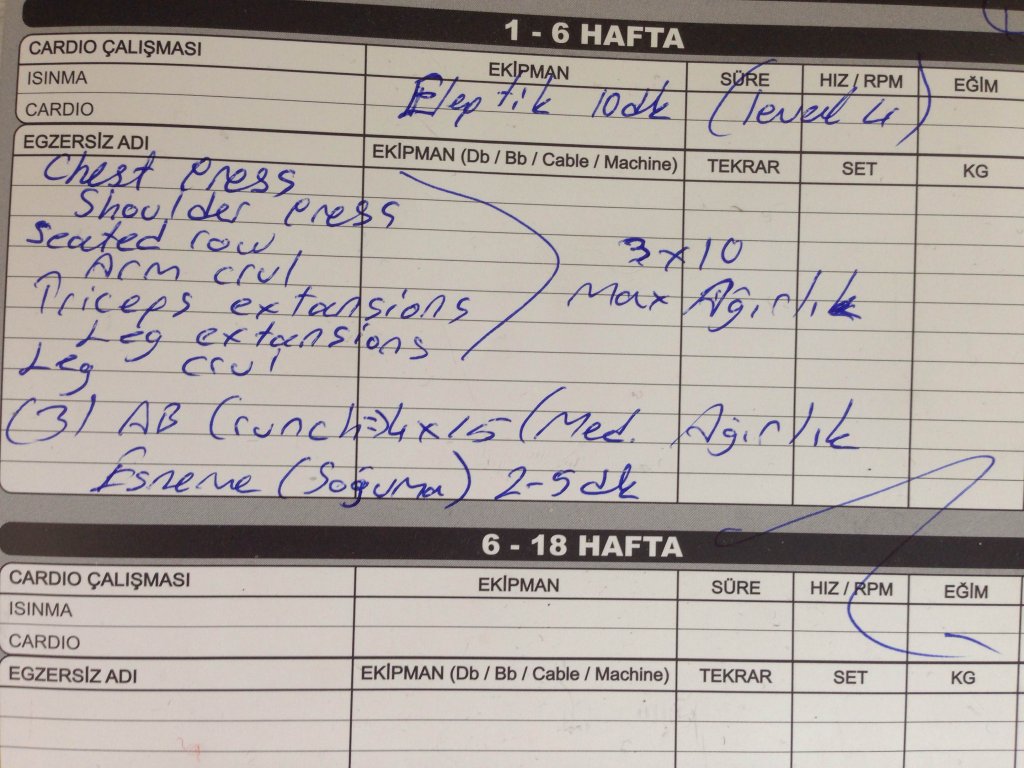 1 - 6 HAFTA
CARDIO ÇALIŞMASI EKİPMAN SÜRE HIZ / RPM EĞİM
ISINMA
CARDIO Eleptik 10dk (level 4)
EGZERSİZ ADI EKİPMAN (Db / Bb / Cable / Machine) TEKRAR SET KG
Chest press
Shoulder press
Seated row
Arm crul
Triceps extansions
Leg extansions
Leg crul
3x10
Max Ağırlık
(3) AB Crunch => 4x15 (Med. Ağırlık
Esneme (Soğuma) 2-5 dk
6 - 18 HAFTA
CARDIO ÇALIŞMASI EKİPMAN SÜRE HIZ / RPM EĞİM
ISINMA
CARDIO
EGZERSİZ ADI EKİPMAN (Db / Bb / Cable / Machine) TEKRAR SET KG